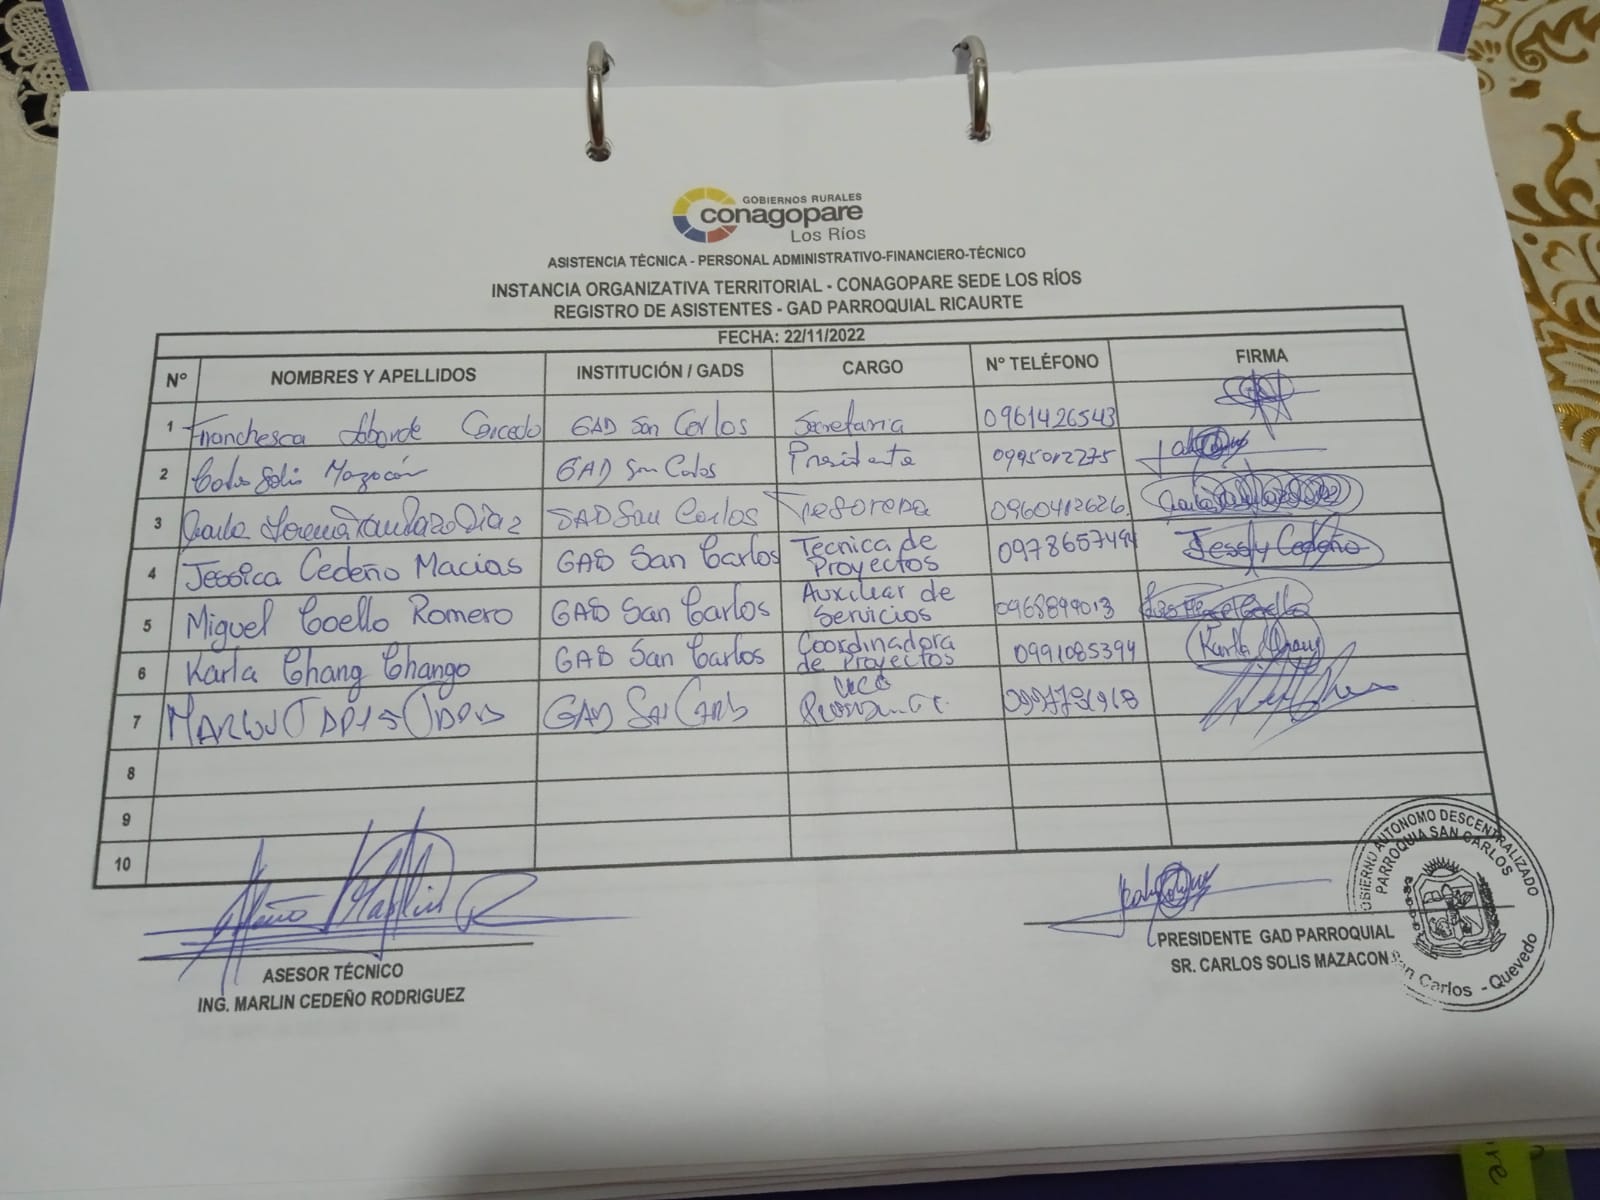 GOBIERNOS RURALES
conagopare
Los Ríos
ASISTENCIA TÉCNICA - PERSONAL ADMINISTRATIVO-FINANCIERO-TÉCNICO
INSTANCIA ORGANIZATIVA TERRITORIAL - CONAGOPARE SEDE LOS RÍOS
REGISTRO DE ASISTENTES - GAD PARROQUIAL RICAURTE
FECHA: 22/11/2022
Nº NOMBRES Y APELLIDOS INSTITUCIÓN / GADS CARGO Nº TELÉFONO FIRMA
1 Franchesca Caicedo GAD San Carlos Secretaria 0961426543
2 Carlos Solis Mazacón GAD San Carlos Presidente 0995012275
3 GAD San Carlos Tesorera 0960412626
4 Jessica Cedeño Macias GAD San Carlos Tecnica de Proyectos Jessy Cedeño
5 Miguel Coello Romero GAD San Carlos Auxiliar de Servicios 0968899013
6 Karla Chang Chango GAD San Carlos Coordinadora de Proyectos 0991085394 Karla Chang
7 GAD San Carlos
8
9
10
ASESOR TÉCNICO
ING. MARLIN CEDEÑO RODRIGUEZ
PRESIDENTE GAD PARROQUIAL
SR. CARLOS SOLIS MAZACON
GOBIERNO AUTONOMO DESCENTRALIZADO
PARROQUIA SAN CARLOS
San Carlos - Quevedo